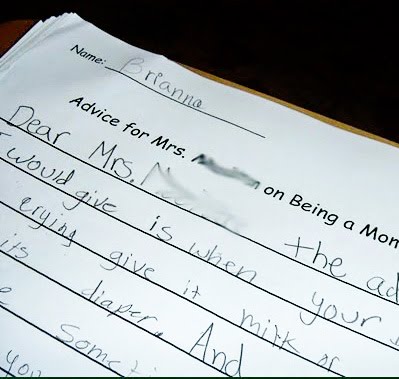 Name: Brianna
Advice for Mrs. on Being a Mom
Dear Mrs. the ad
I would give is when your
crying give it milk or
is diaper. And
e Someti
you